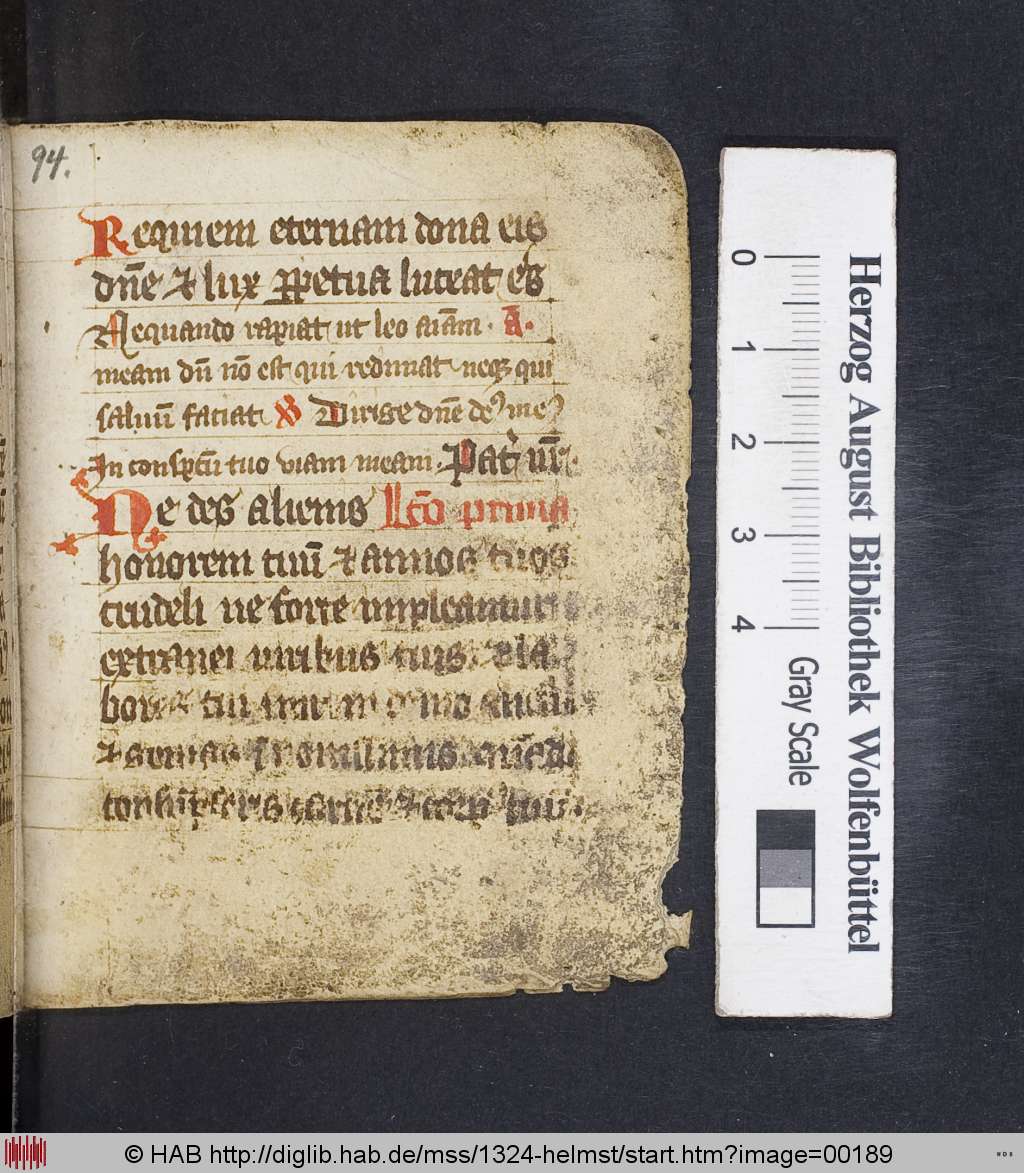 94.
Requiem eternam dona eis
dn̄e ⁊ lux ꝑpetua luceat eis
Nequando rapiat ut leo aīam · A.
meam dū nō est qui redimat neqꝫ qui
saluū faciat ℣ Dirige dn̄e deꝰ meꝰ
In conspc̄tu tuo viam meam . Pat̄ nr̄ .
Ne des alienis Lc̄o prima
honorem tuū ⁊ annos tuos
crudeli ne forte impleantur
extranei uiribus tuis ⁊ la
bores tui in domo
⁊ gemas in nouissimis
consūpseris carnes ⁊ corp tuū
Herzog August Bibliothek Wolfenbüttel
0
1
2
3
4
Gray Scale
© HAB http://diglib.hab.de/mss/1324-helmst/start.htm?image=00189